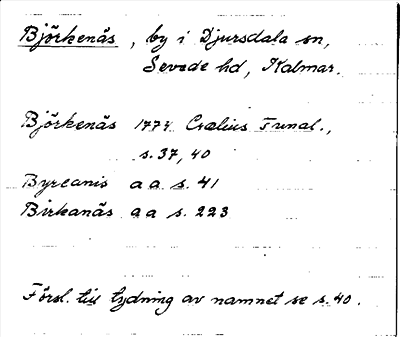 Björkenäs, by i Djursdala sn,
Sevede hd, Kalmar.
Björkenäs 1774 Crælius Tunal.,
s. 37, 40
Byrcanis a a s. 41
Birkanäs a a s. 223
Försl. till tydning av namnet se s. 40.